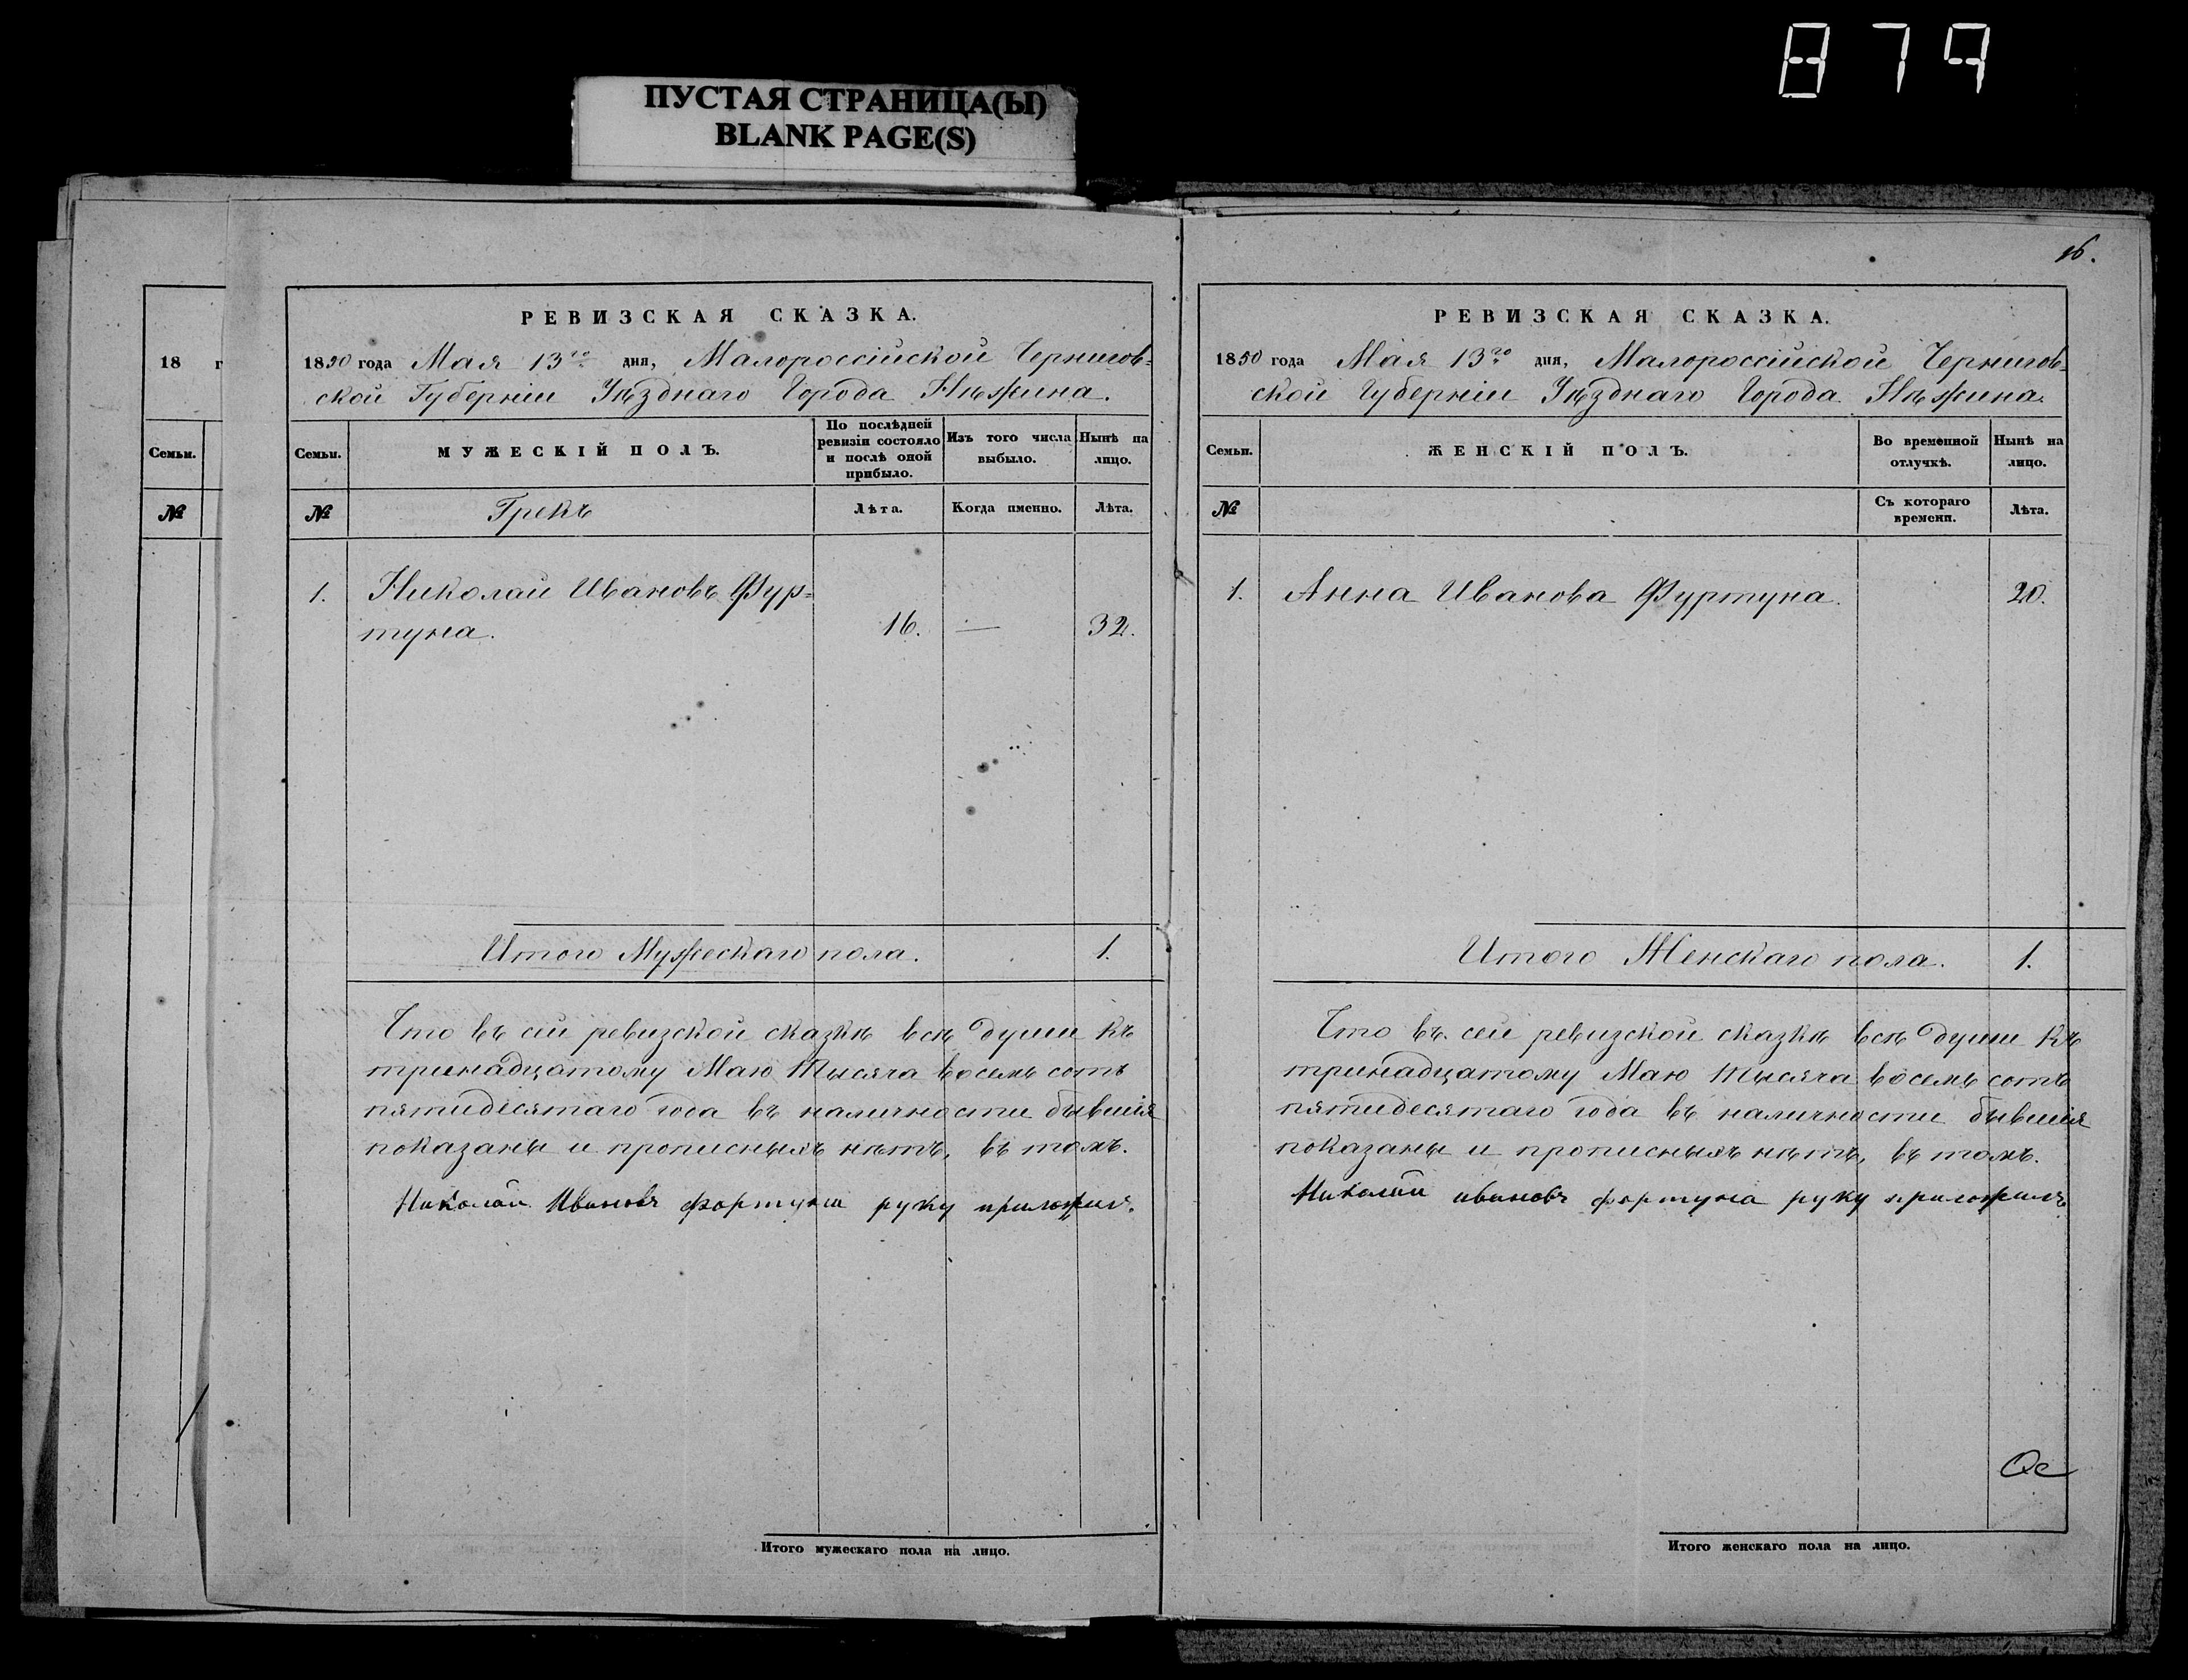 879
ПУСТАЯ СТРАНИЦА(Ы)
BLANK PAGE(S)
18 г
Семьи.
№
РЕВИЗСКАЯ СКАЗКА.
1850 года Мая 13го дня, Малороссійской Чернигов-
ской Губерніи Уѣзднаго Города Нѣжина.
Семьи.
МУЖЕСКІЙ ПОЛЪ.
По послѣдней ревизіи состояло и послѣ оной прибыло.
Изъ того числа выбыло.
Нынѣ на лицо.
№
Грекъ
Лѣта.
Когда именно.
Лѣта.
1. Николай Ивановъ Фур-
туна. 16. — 32.
Итого Мужескаго пола. 1.
Что въ сей ревизской сказкѣ всѣ души къ
тринадцатому Маю тысяча восемь сотъ
пятидесятаго года въ наличности бывшія
показаны и прописныхъ нѣтъ, въ томъ.
Николай Ивановъ фортуна руку приложилъ.
Итого мужескаго пола на лицо.
16.
РЕВИЗСКАЯ СКАЗКА.
1850 года Мая 13го дня, Малороссійской Чернигов-
ской Губерніи Уѣзднаго Города Нѣжина.
Семьи.
ЖЕНСКІЙ ПОЛЪ.
Во временной отлучкѣ.
Нынѣ на лицо.
№
Съ котораго времени.
Лѣта.
1. Анна Иванова Фуртуна. 20.
Итого Женскаго пола. 1.
Что въ сей ревизской сказкѣ всѣ души къ
тринадцатому Маю тысяча восемь сотъ
пятидесятаго года въ наличности бывшія
показаны и прописныхъ нѣтъ, въ томъ.
Николай ивановъ фортуна руку приложилъ
Итого женскаго пола на лицо.